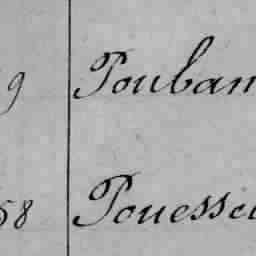 9 Pouban
58 Pouesse